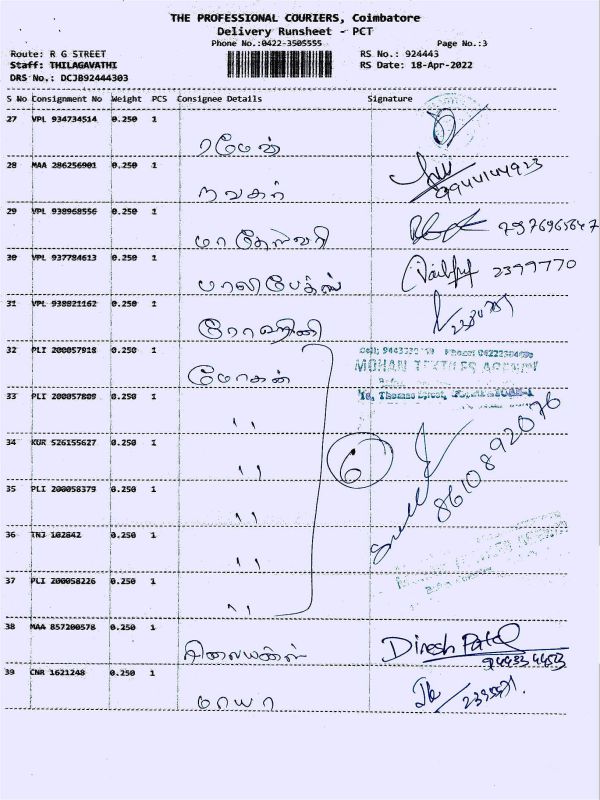 THE PROFESSIONAL COURIERS, Coimbatore
Delivery Runsheet - PCT
Phone No.:0422-3505555
Page No.:3
Route: R G STREET
RS No.: 924443
Staff: THILAGAVATHI
RS Date: 18-Apr-2022
DRS No.: DCJB92444303
S No Consignment No Weight PCS Consignee Details Signature
27 VPL 934734514 0.250 1
ரமேஷ்
28 MAA 286256901 0.250 1
9944144923
29 VPL 938968556 0.250 1
மாகேஸ்வரி
30 VPL 937784613 0.250 1
பாலிபேக்ஸ் 2399770
31 VPL 938021162 0.250 1
ரோஹிணி
32 PLI 200057918 0.250 1
மோகன்
MOHAN TEXTILES AGENCY
33 PLI 200057809 0.250 1
,,
34 KUR 526155627 0.250 1
,, 6 8610892076
35 PLI 200058379 0.250 1
,,
36 TNJ 102842 0.250 1
,,
37 PLI 200058226 0.250 1
,,
38 MAA 857200578 0.250 1
Dinesh Patel
39 CNR 1621248 0.250 1
மாயா